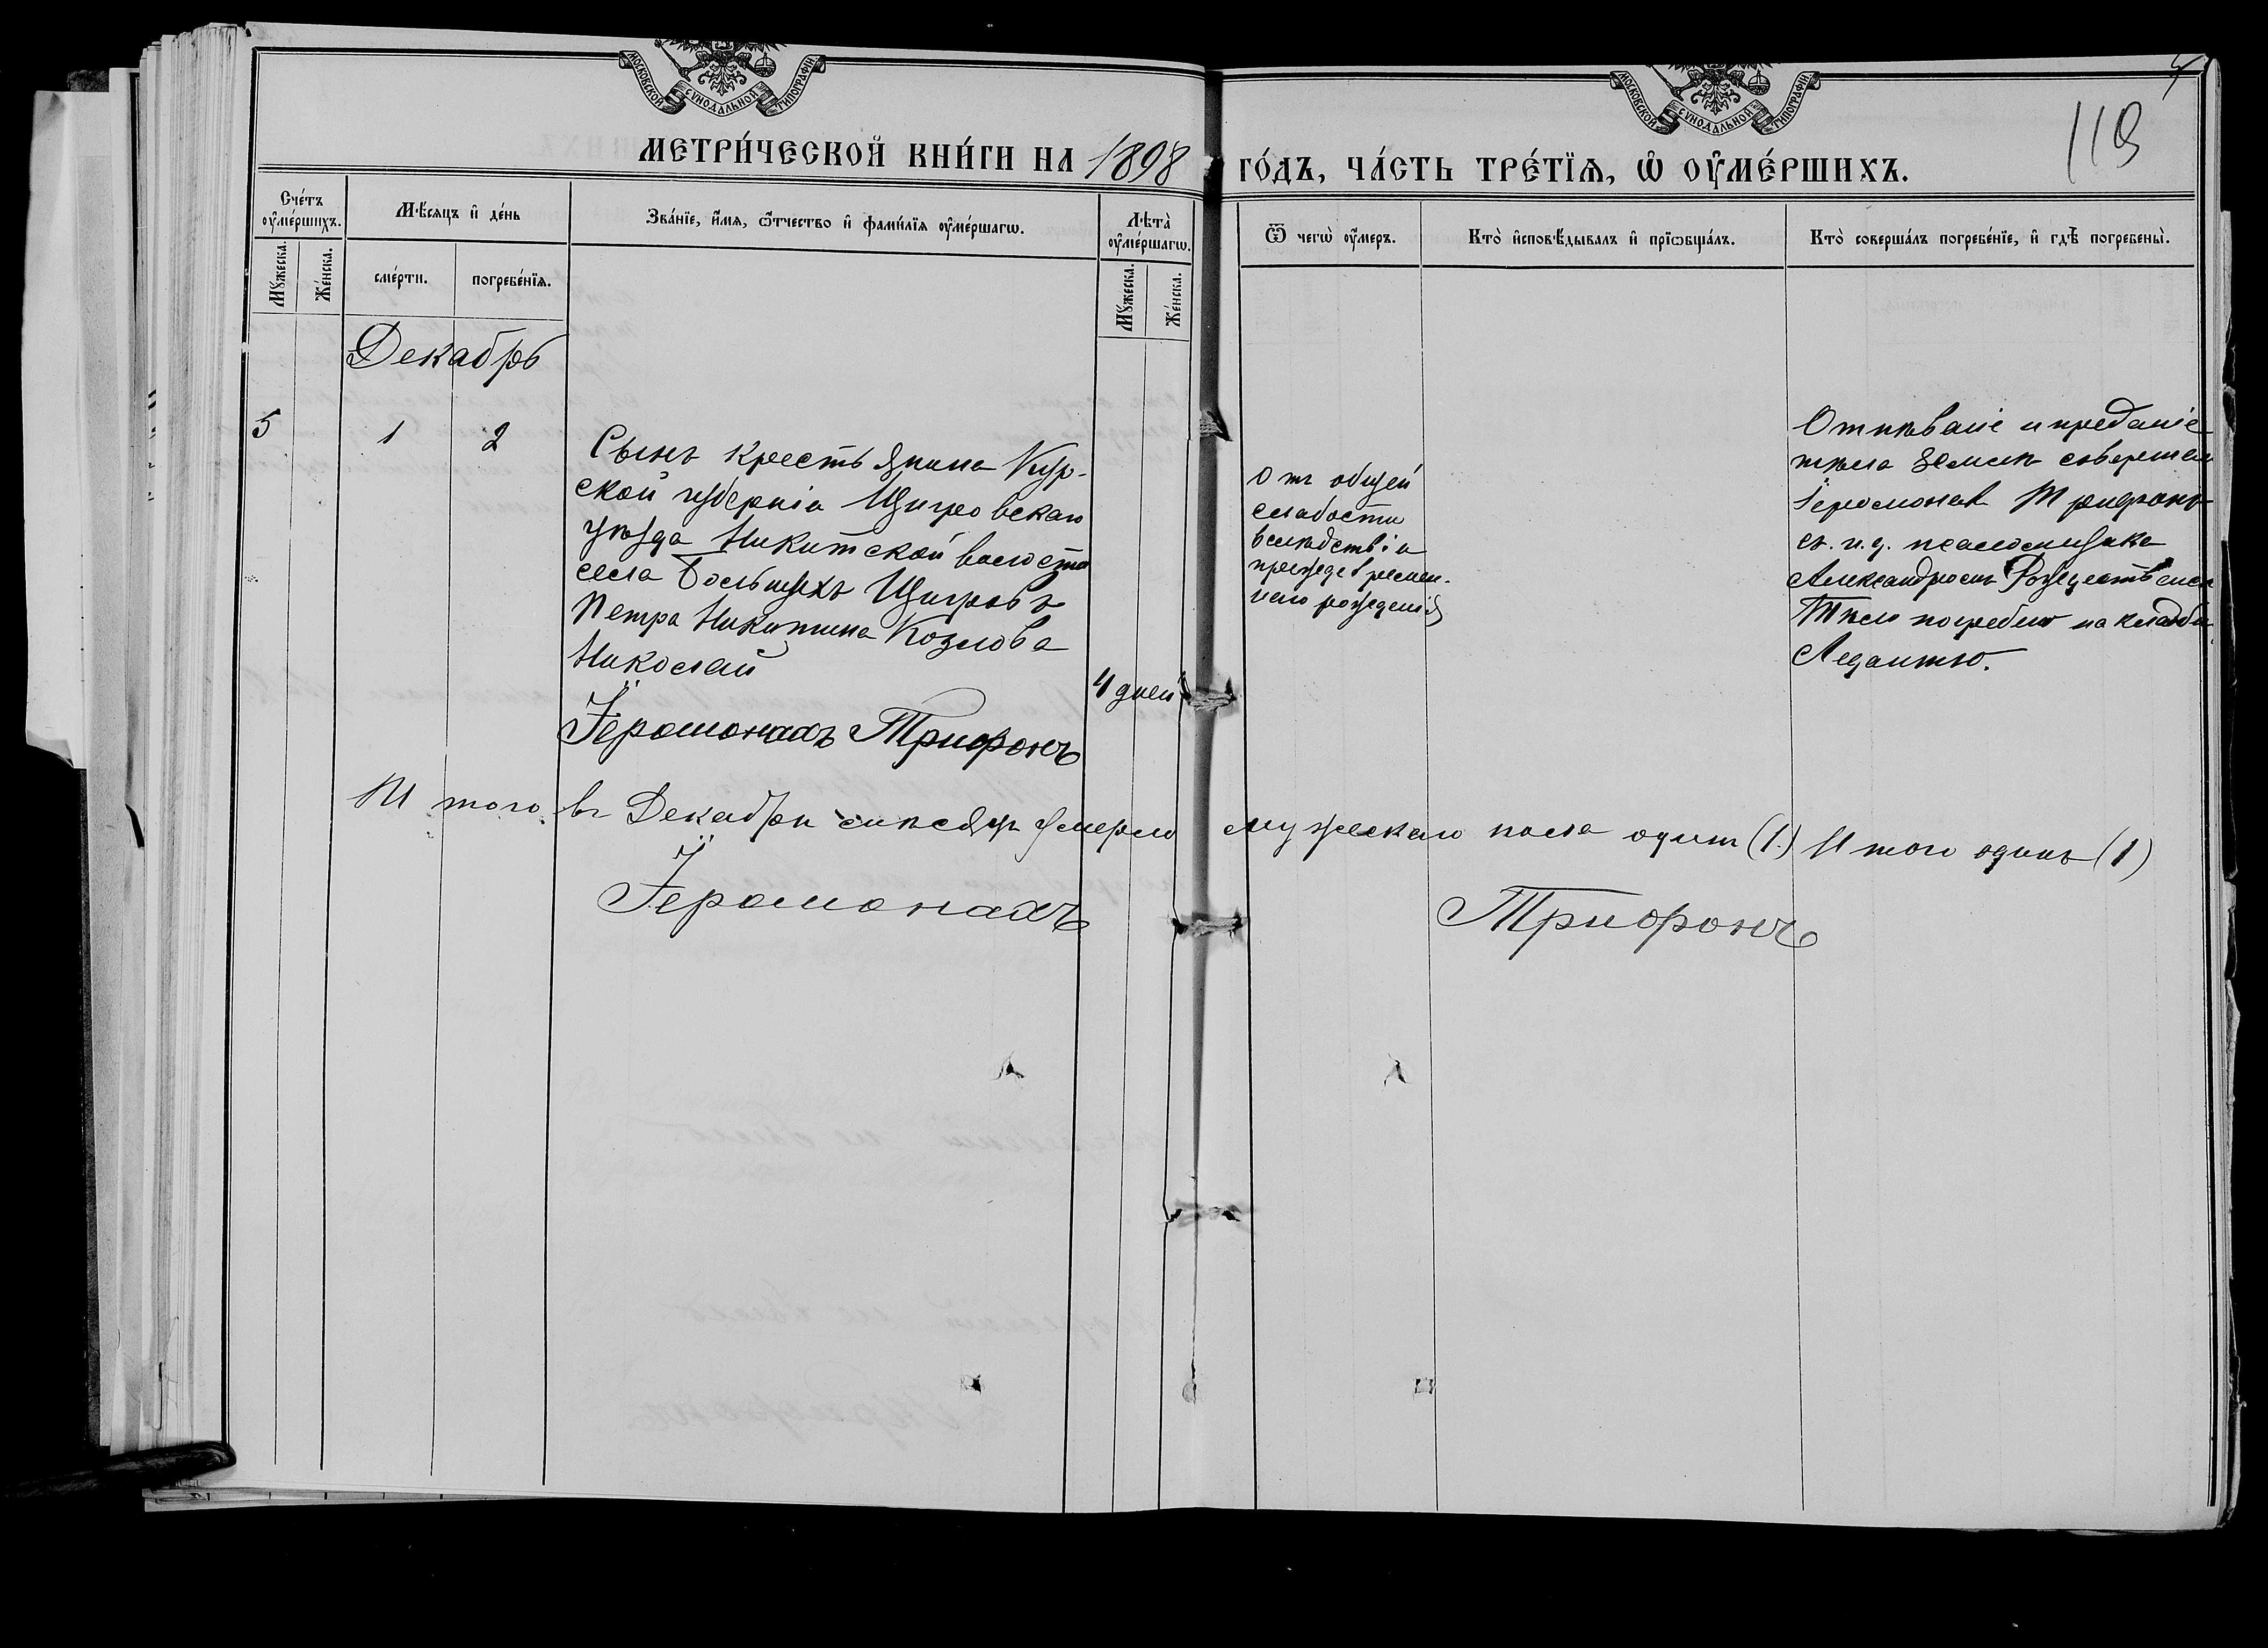 МОСКОВСКОЙ СѴНОДАЛЬНОЙ ТИПОГРАФІИ
МЕТРИ́ЧЕСКОЙ КНИ́ГИ НА 1898
Сче́тъ ᲂу҆ме́ршихъ.
Му́жеска.
Же́нска.
Мѣ́сяцъ и҆ де́нь
сме́рти.
погребе́нїѧ.
Зва́нїе, и҆́мѧ, ѻ҆́тчество и҆ фами́лїѧ ᲂу҆ме́ршагѡ.
Лѣ́та ᲂу҆ме́ршагѡ.
Му́жеска.
Же́нска.
Декабрь
5
1
2
Сынъ крестьянина Кур-
ской губерніи Щигровскаго
уѣзда Никитской волости
села Большихъ Щигровъ
Петра Никитина Козлова
Николай
4 дней
Іеромонахъ Трифонъ
Итого въ Декабрѣ мѣсяцѣ умерло
Іеромонахъ
МОСКОВСКОЙ СѴНОДАЛЬНОЙ ТИПОГРАФІИ
119
ГО́ДЪ, ЧА́СТЬ ТРЕ́ТЇѦ, Ѡ҆ ОУ҆МЕ́РШИХЪ.
Ѿ чегѡ̀ ᲂу҆́меръ.
Кто̀ и҆сповѣ́дывалъ и҆ прїѡбща́лъ.
Кто̀ соверша́лъ погребе́нїе, и҆ гдѣ̀ погребены̀.
Отъ общей
слабости
вслѣдствіи
преждевремен-
наго рожденія
Отпѣваніе и преданіе
тѣла землѣ совершалъ
Іеромонахъ Трифонъ
съ и. д. псаломщика
Александромъ Рождественск
Тѣло погребено на кладби
мужескаго пола одинъ (1.) Итого одинъ (1)
Трифонъ